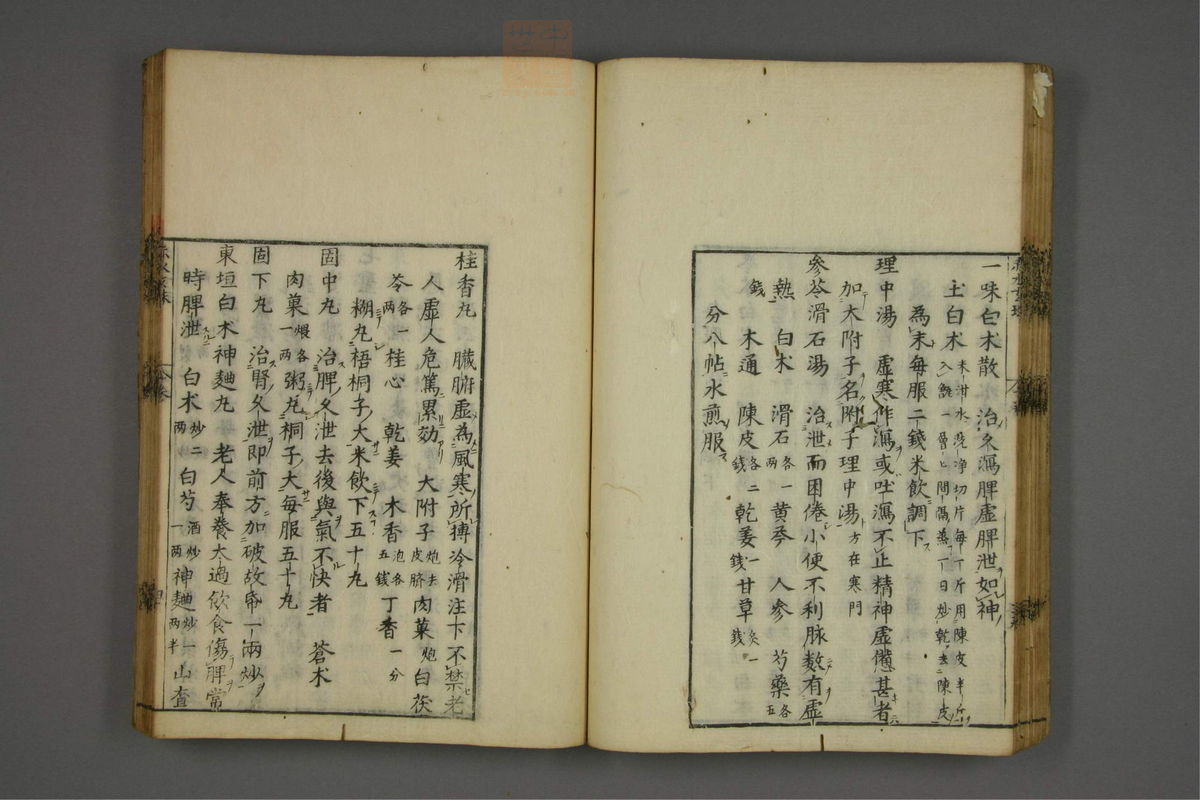 一味白朮散　治久瀉脾虛脾泄如神
土白朮 米泔水浸淨切片每一斤用陳皮半斤入甑一層 間隔蒸一日炒乾去陳皮
為末每服二錢米飲調下
理中湯　虛寒作瀉或吐瀉不止精神虛憊甚者
加大附子名附子理中湯 方在寒門
參苓滑石湯　治泄而困倦小便不利脉數有虛
熱　白朮　滑石各一兩　黃芩　人參　芍藥各五
錢　木通　陳皮各二錢　乾姜一錢　甘草炙一錢
分八帖水煎服
桂香丸　臟腑虛為風寒所搏冷滑注下不禁老
人虛人危篤累効　大附子炮去皮臍　肉菓炮　白茯
苓各一兩　桂心　乾姜　木香各五錢　丁香一分
糊丸梧桐子大米飲下五十丸
固中丸　治脾久泄去後與氣不快者　蒼朮
肉菓煨各一兩　粥丸桐子大每服五十丸
固下丸　治腎久泄即前方加破故帋一兩炒
東垣白朮神麯丸　老人奉養太過飲食傷脾常
時脾泄　白朮炒二兩　白芍酒炒一兩　神麯炒一兩半　山查